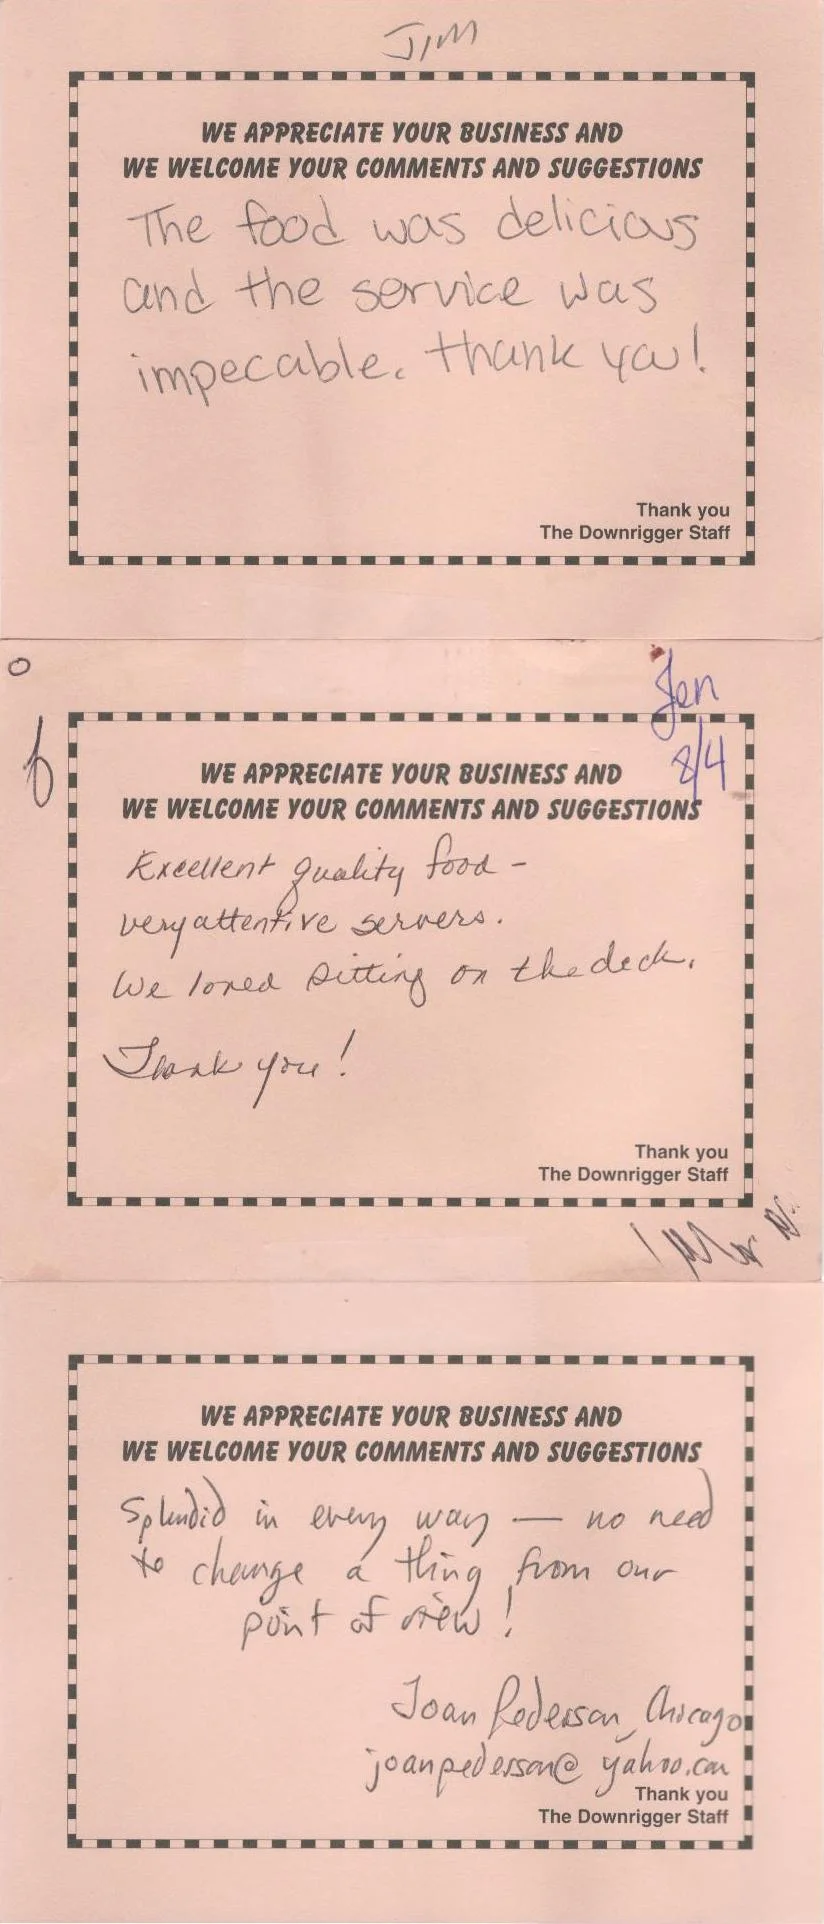 JIM
WE APPRECIATE YOUR BUSINESS AND
WE WELCOME YOUR COMMENTS AND SUGGESTIONS
The food was delicious
and the service was
impecable. thank you!
Thank you
The Downrigger Staff
Jen
8/4
WE APPRECIATE YOUR BUSINESS AND
WE WELCOME YOUR COMMENTS AND SUGGESTIONS
Excellent quality food -
very attentive servers.
We loved sitting on the deck.
Thank you!
Thank you
The Downrigger Staff
WE APPRECIATE YOUR BUSINESS AND
WE WELCOME YOUR COMMENTS AND SUGGESTIONS
Splendid in every way — no need
to change a thing from our
point of view!
Joan Pederson, Chicago
joanpederson@yahoo.com
Thank you
The Downrigger Staff